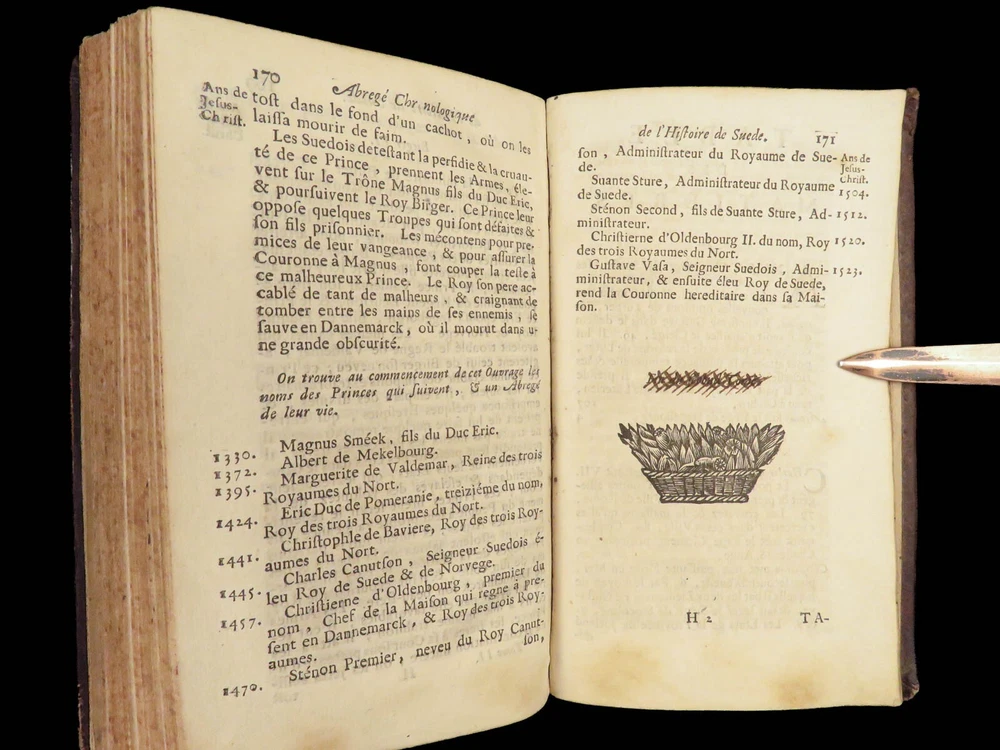 170
Abregé Chronologique
Ans de
Jesus-
Christ.
toſt dans le fond d'un cachot, où on les
laiſſa mourir de faim.
Les Suedois deteſtant la perfidie & la cruau-
té de ce Prince, prennent les Armes, éle-
vent ſur le Trône Magnus fils du Duc Eric,
& pourſuivent le Roy Birger. Ce Prince leur
oppoſe quelques Troupes qui ſont défaites &
ſon fils priſonnier. Les mécontens pour pre-
mices de leur vangeance, & pour aſſurer la
Couronne à Magnus, font couper la teſte à
ce malheureux Prince. Le Roy ſon pere ac-
cablé de tant de malheurs, & craignant de
tomber entre les mains de ſes ennemis, ſe
ſauve en Dannemarck, où il mourut dans u-
ne grande obſcurité.
On trouve au commencement de cet Ouvrage les
noms des Princes qui ſuivent, & un Abregé
de leur vie.
1330. Magnus Sméek, fils du Duc Eric.
1372. Albert de Mekelbourg.
1395. Marguerite de Valdemar, Reine des trois
Royaumes du Nort.
1424. Eric Duc de Pomeranie, treiziéme du nom,
Roy des trois Royaumes du Nort.
1441. Chriſtophle de Baviere, Roy des trois Roy-
aumes du Nort.
1445. Charles Canutſon, Seigneur Suedois é-
leu Roy de Suede & de Norvege.
1457. Chriſtierne d'Oldenbourg, premier du
nom, Chef de la Maiſon qui regne à pre-
ſent en Dannemarck, & Roy des trois Roy-
aumes.
1470. Sténon Premier, neveu du Roy Canut-
ſon,
de l'Hiſtoire de Suede. 171
Ans de
Jeſus-
Chriſt.
ſon, Adminiſtrateur du Royaume de Sue-
de.
Suante Sture, Adminiſtrateur du Royaume 1504.
de Suede.
Sténon Second, fils de Suante Sture, Ad- 1512.
miniſtrateur.
Chriſtierne d'Oldenbourg II. du nom, Roy 1520.
des trois Royaumes du Nort.
Guſtave Vaſa, Seigneur Suedois, Admi- 1523.
miniſtrateur, & enſuite éleu Roy de Suede,
rend la Couronne hereditaire dans ſa Mai-
ſon.
H 2
TA-